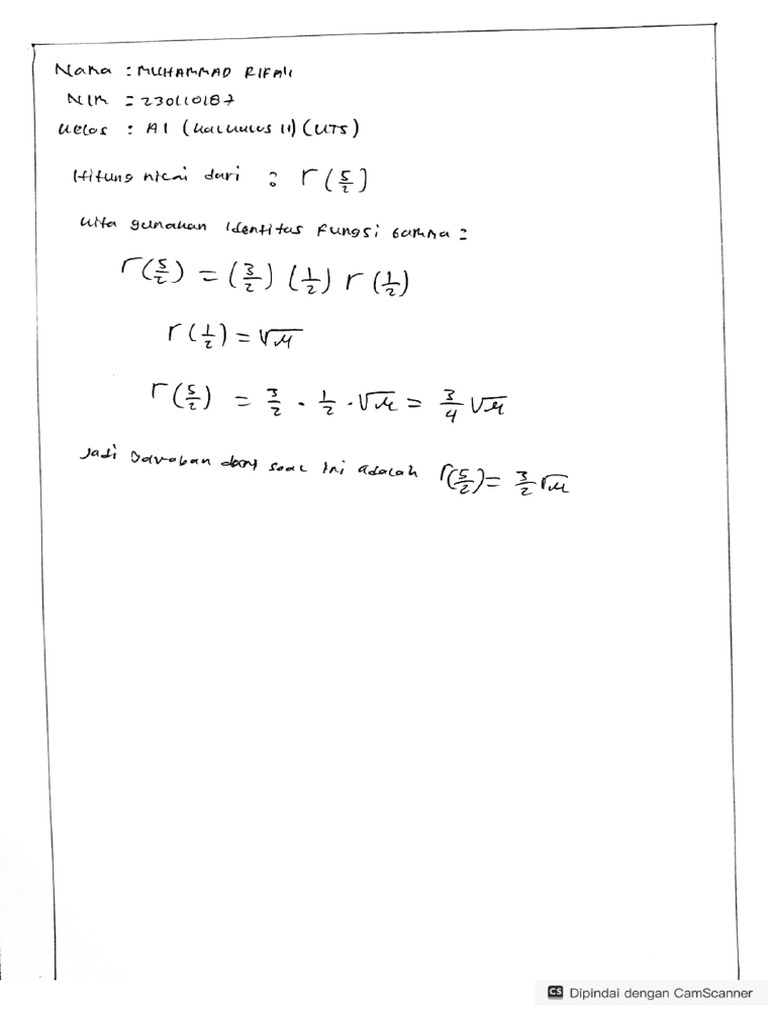 Nama : MUHAMMAD RIFAI
NIM = 230110187
Kelas : A1 (Kalkulus II) (UTS)
Hitung nilai dari : Γ(5/2)
Kita gunakan Identitas Fungsi Gamma :
Γ(5/2) = (3/2) (1/2) Γ(1/2)
Γ(1/2) = √π
Γ(5/2) = 3/2 · 1/2 · √π = 3/4 √π
Jadi Jawaban dari soal ini adalah Γ(5/2) = 3/2 √π
CS Dipindai dengan CamScanner